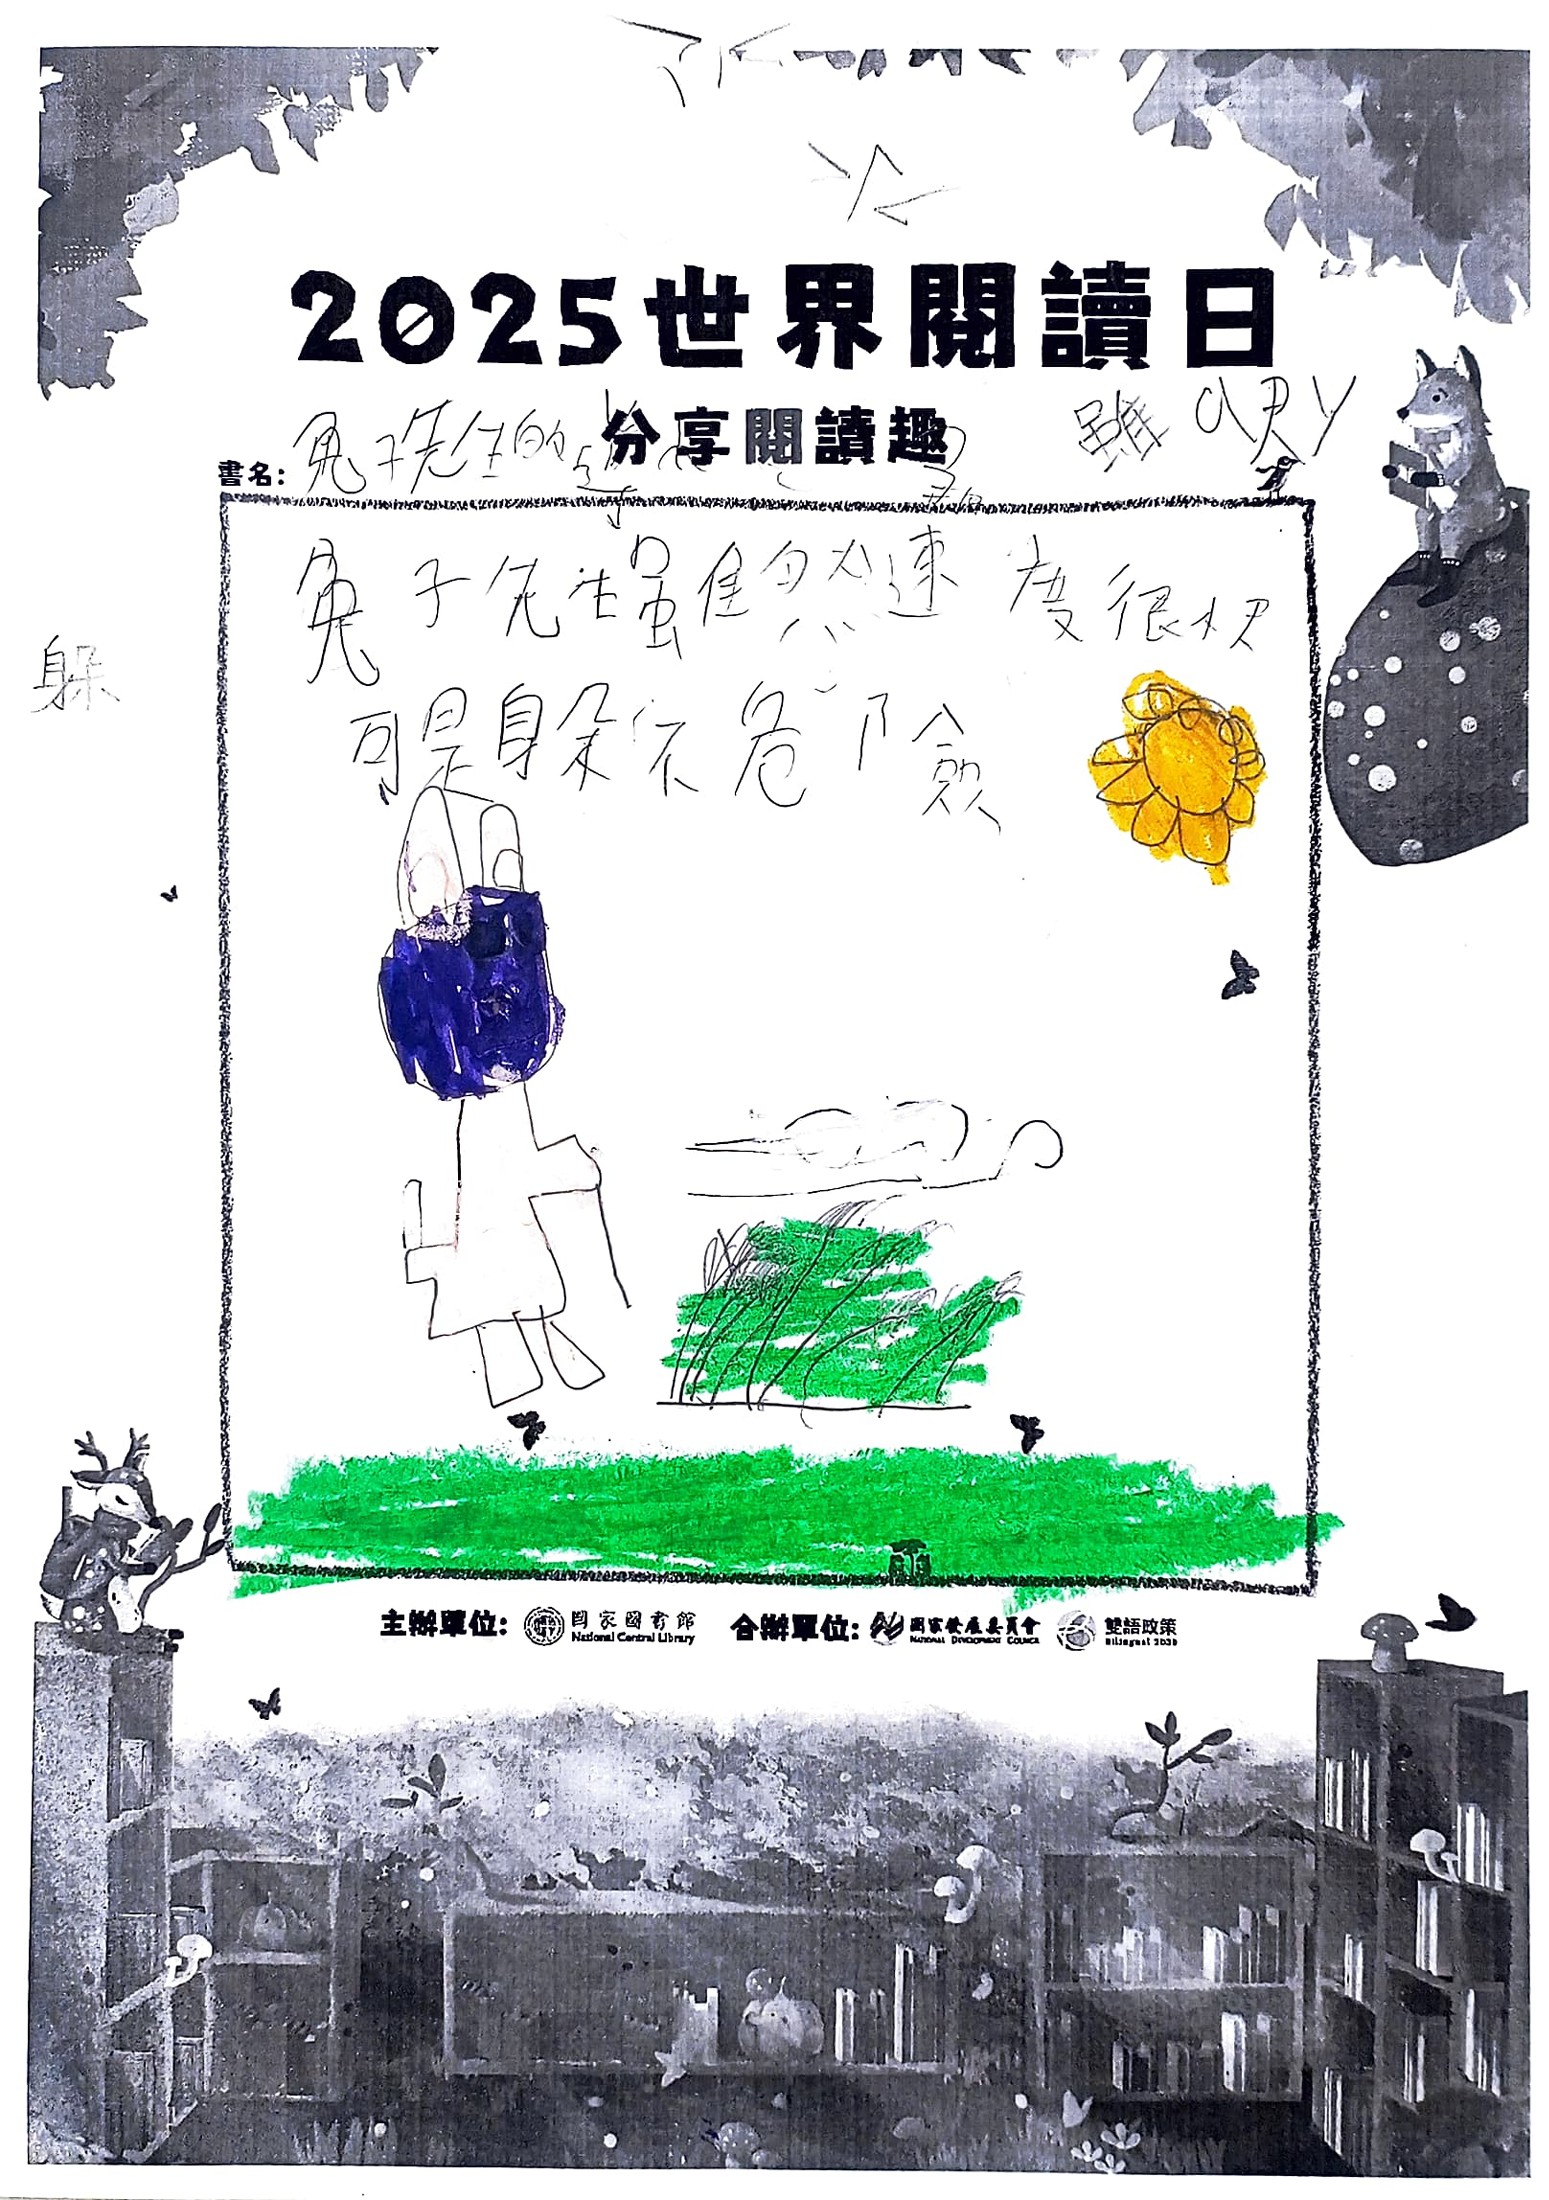 2025世界閱讀日
分享閱讀趣
雖 ary
書名: 兔子先生的
兔子先生雖然速度很快
躲
可是躲不危險
主辦單位: 國家圖書館 National Central Library 合辦單位: 國家發展委員會 National Development Council 雙語政策 Bilingual 2030